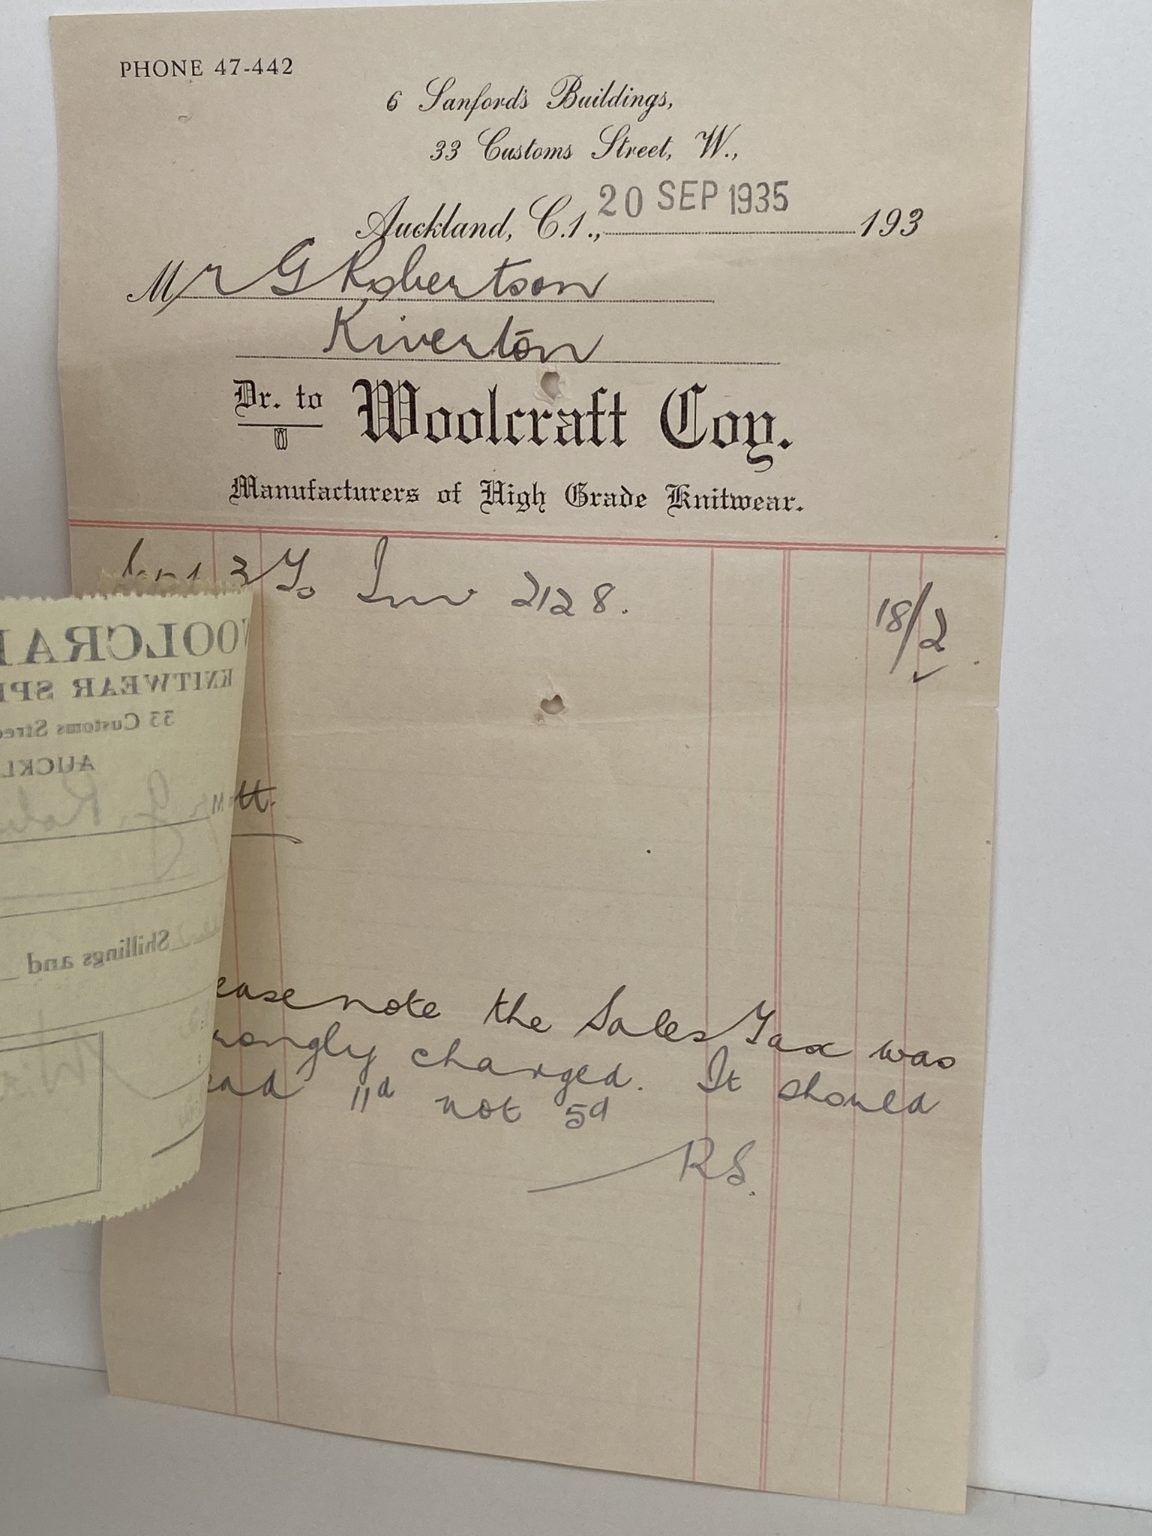 PHONE 47-442
6 Sanford's Buildings,
33 Customs Street, W.,
Auckland, C.1., 20 SEP 1935 193
Mr G Robertson
Riverton
Dr. to Woolcraft Coy.
Manufacturers of High Grade Knitwear.
3 To Inv 2128. 18/2
OOLCRA
KNITWEAR SPE
33 Customs Stree
AUCKL
M
Shillings and
ease note the Sales Tax was
rongly charged. It should
ead 11d not 5d
RS.